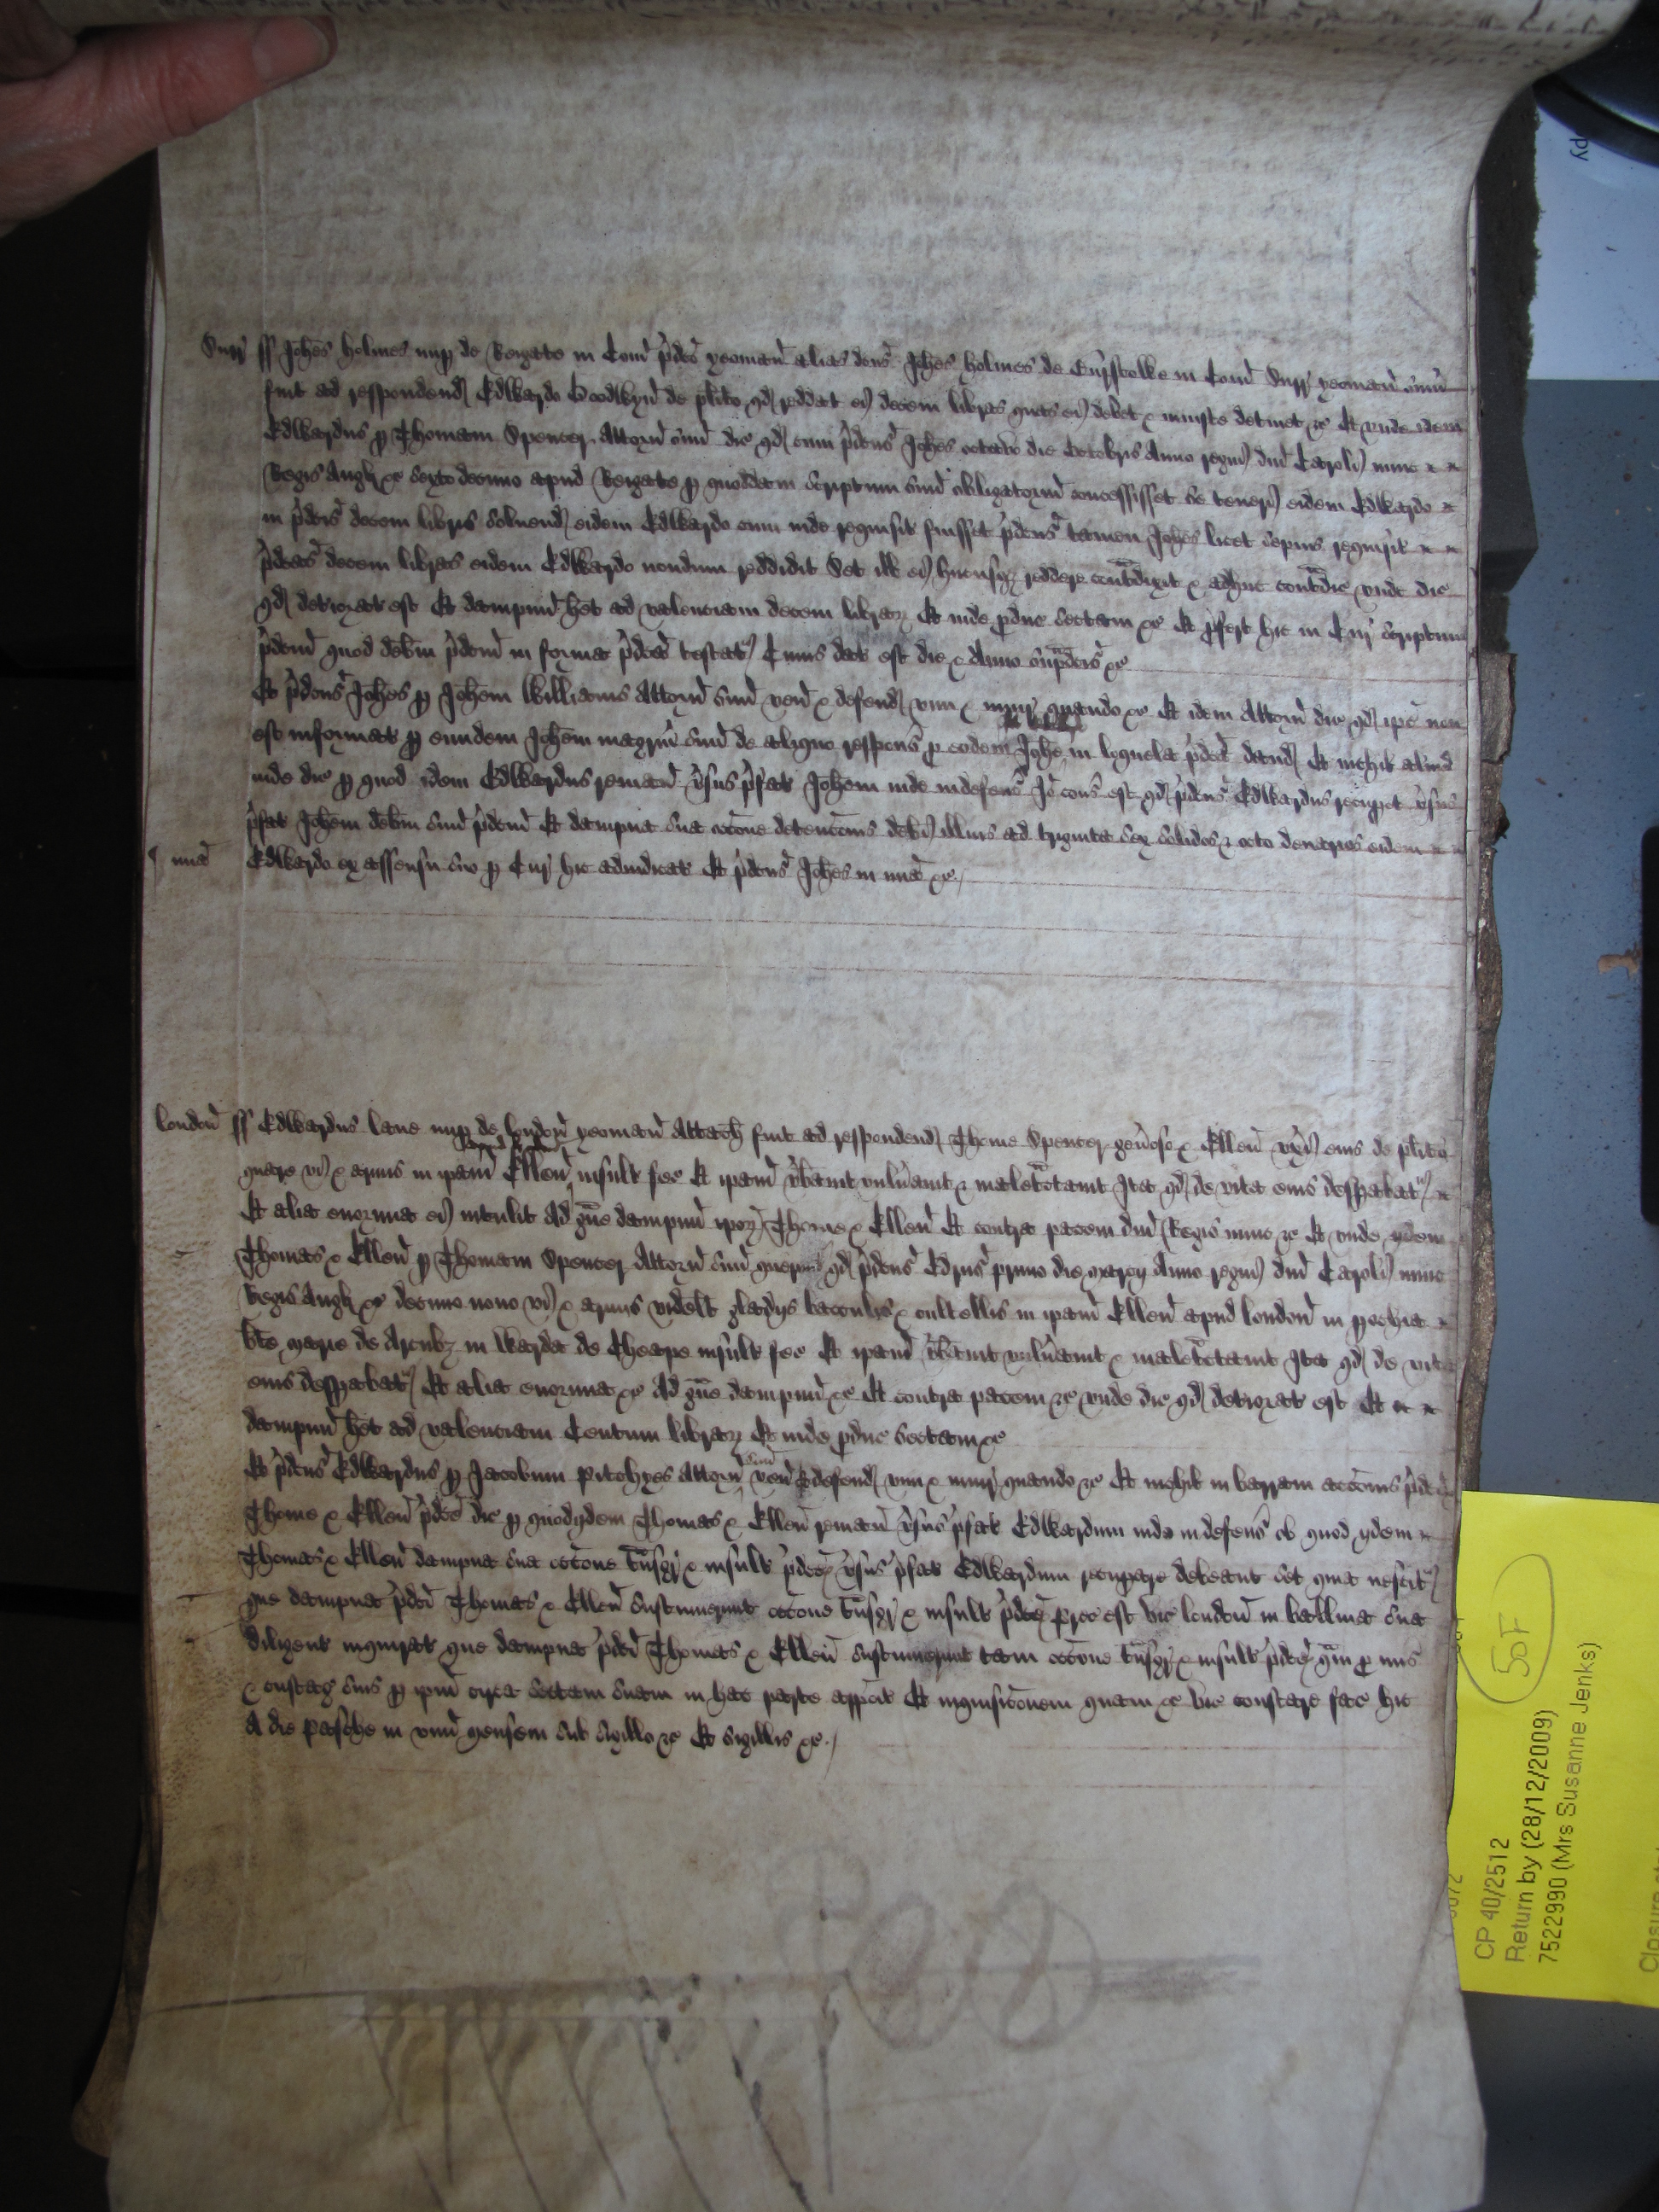 Surr ss Johes Holmes nup de Reigate in Com p̄dco yeoman alias dcus Johes Holmes de Burstowe in Com Surr yeoman sum
fuit ad respondend Edwardo Goodwyn de plito qd reddat ei decem libras quas ei debet & iniuste detinet &c Et unde idem
Edwardus p Thomam Spencer Attorn suu dic qd cum p̄dcus Johes octavo die Octobris Anno regni dni Caroli nunc
Regis Angl &c sexto decimo apud Reigate p quoddam scriptum suu obligatoriu concessisset se teneri eidem Edwardo
in p̄dcis decem libris solvend eidem Edwardo cum inde requisit fuisset p̄dcus tamen Johes licet sepius requisit
p̄dcas decem libras eidem Edwardo nondum reddidit Set ill ei hucusq reddere contradixit & adhuc contradic unde dic
qd deteriorat est Et dampnu het ad valenciam decem librar Et inde produc sectam &c Et profert hic in Cur scriptum
p̄dcm quod debm p̄dcm in forma p̄dca testat Cuius dat est die & Anno sup̄dcis &c
Et p̄dcus Johes p Johem Williams Attorn suu ven & defend vim & iniur quando &c Et idem Attorn dic qd ipe non
est informat p eundem Johem magrm suu de aliquo respons p eodem Johe in loquela p̄dca dand Et nichil aliud
inde dic p quod idem Edwardus reman v̄sus p̄fat Johem inde indefens Io cons est qd p̄dcus Edwardus recupet v̄sus
p̄fat Johem debm suu p̄dcm Et dampna sua occone detencois debi illius ad triginta sex solidos & octo denarios eidem
mia Edwardo ex assensu suo p Cur hic adiudicat Et p̄dcus Johes in mia &c
London ss Edwardus Lane nup de London yeoman Attach fuit ad respondend Thome Spencer gen̄oso & Ellen ux̄i eius de plito
quare vi & armis in ipam Ellen insult fec Et ipam v̄beravit vuln̄avit & maletractavit Ita qd de vita eius desp̄abat
Et alia enormia ei intulit Ad gūe dampnu ipor Thome & Ellen Et contra pacem dni Regis nunc &c Et unde ijdem
Thomas & Ellen p Thomam Spencer Attorn suu querunt qd p̄dcus Edrus primo die Marcij Anno regni dni Caroli nunc
Regis Angl &c decimo nono vi & armis videlt gladijs baculis & cultellis in ipam Ellen apud London in pochia
bte Marie de Arcubz in Warda de Cheape insult fec Et ipam v̄beravit vuln̄avit & maletractavit Ita qd de vita
eius desp̄abat Et alia enormia &c Ad gūe dampnu &c Et contra pacem &c unde dic qd deteriorat est Et
dampnu het ad valenciam Centum librar Et inde produc sectam &c
Et p̄dcus Edwardus p Jacobum Pitchyes Attorn suu ven & defend vim & iniur quando &c Et nichil in barram accois p̄dcor
Thome & Ellen p̄dce dic p quod ijdem Thomas & Ellen reman v̄sus p̄fat Edwardum inde indefens ob quod ijdem
Thomas & Ellen dampna sua occone trnsgr & insult p̄dcor v̄sus p̄fat Edwardum recupare debeant Set quia nescit
que dampna p̄dci Thomas & Ellen sustinuerunt occone trnsgr & insult p̄dcor prec est vic London in balliua sua
diligent inquirat que dampna p̄dci Thomas & Ellen sustinuerunt tam occone trnsgr & insult p̄dcor qam p mis
& custag suis p ipm circa sectam suam in hac parte appoit Et inquisicoem quam &c vic constare fac hic
A die Pasche in unu mensem sub sigillo &c Et sigillis &c
50F
CP 40/2512
Return by (28/12/2009)
7522990 (Mrs Susanne Jenks)